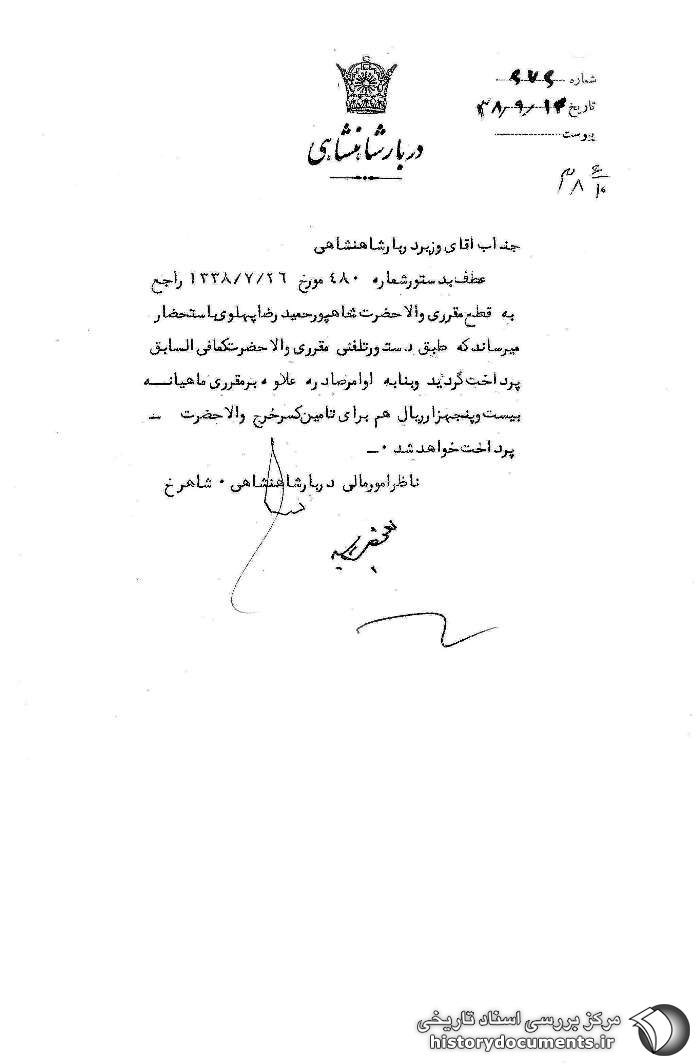 شماره ۶۷۶
تاریخ ۳۸/۹/۱۴
پیوست
دربار شاهنشاهی
۳۸
جناب آقای وزیر دربار شاهنشاهی
عطف بدستور شماره ۴۸۰ مورخ ۱۳۳۸/۷/۲۶ راجع
به قطع مقرری والاحضرت شاهپور حمید رضا پهلوی باستحضار
میرساند که طبق دستور تلفنی مقرری والاحضرت کمافی السابق
پرداخت گردید و بنا به اوامر صادره علاوه بر مقرری ماهیانه
بیست و پنجهزار ریال هم برای تامین کسر خرج والاحضرت
پرداخت خواهد شد .
ناظر امور مالی دربار شاهنشاهی . شاهرخ
مرکز بررسی اسناد تاریخی
historydocuments.ir